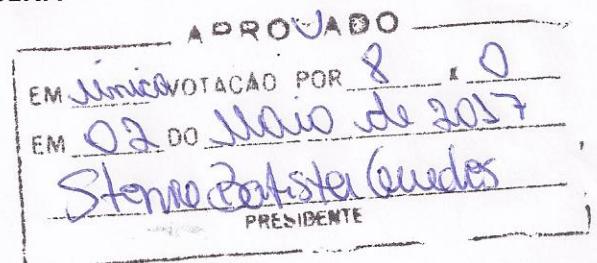 APROVADO
EM única VOTAÇÃO POR 8 x 0
EM 02 DO Maio de 2017
Batista Guedes
PRESIDENTE